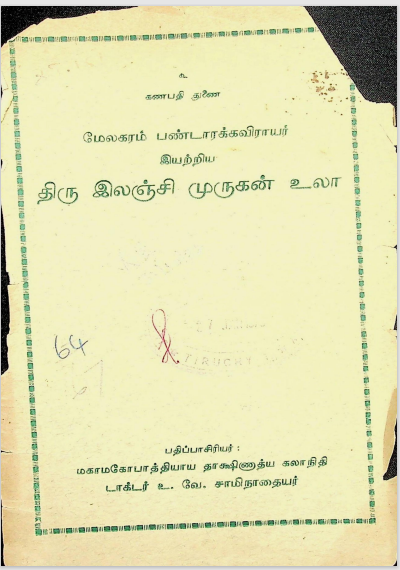 உ
கணபதி துணை
மேலகரம் பண்டாரக்கவிராயர்
இயற்றிய
திரு இலஞ்சி முருகன் உலா
64
TIRUCHY
பதிப்பாசிரியர் :
மகாமகோபாத்தியாய தாக்ஷிணாத்ய கலாநிதி
டாக்டர் உ. வே. சாமிநாதையர்